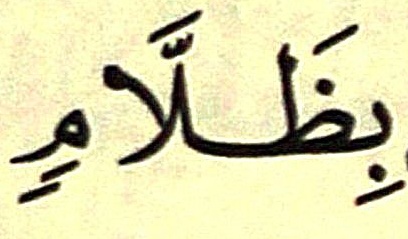 بِظَلَّامٍ